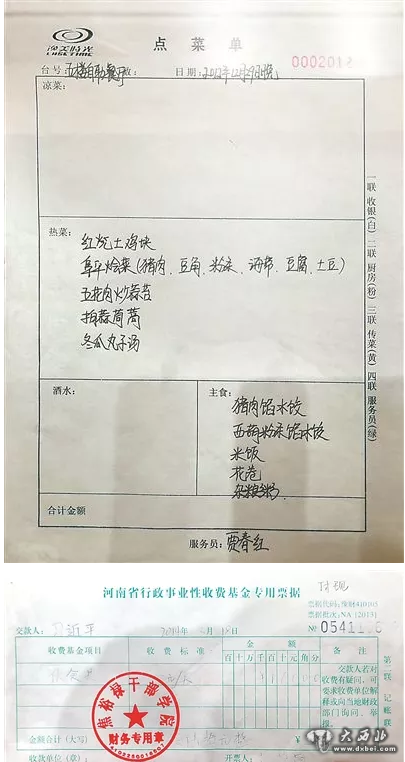 逸美时光
LUSE TIME
点菜单
0002012
台号:五楼自助餐厅 数: 日期:2012年12月29日晚
凉菜:
热菜:
红烧土鸡块
阜平烩菜(猪肉、豆角、粉条、海带、豆腐、土豆)
五花肉炒蒜苔
拍蒜茼蒿
冬瓜丸子汤
酒水:
主食:
猪肉馅水饺
西葫粉条馅水饺
米饭
花卷
杂粮粥
合计金额
服务员:贾春红
一联 收银(白) 二联 厨房(粉) 三联 传菜(黄) 四联 服务员(绿)
河南省行政事业性收费基金专用票据
票据代码:豫财410101
票据批次:NA(2013)
交款人: 2014年 月 日
№
收费基金项目
收费标准
金额
百十万千百十元角分
备注
交款人若对收费有疑问,可要求收费单位解释或向当地财政部门询问、举报。
第二联 记账联
焦裕禄干部学院
财务专用章
金额合计(大写)
收款单位(章):
开票人:
大西北
www.dxbei.com